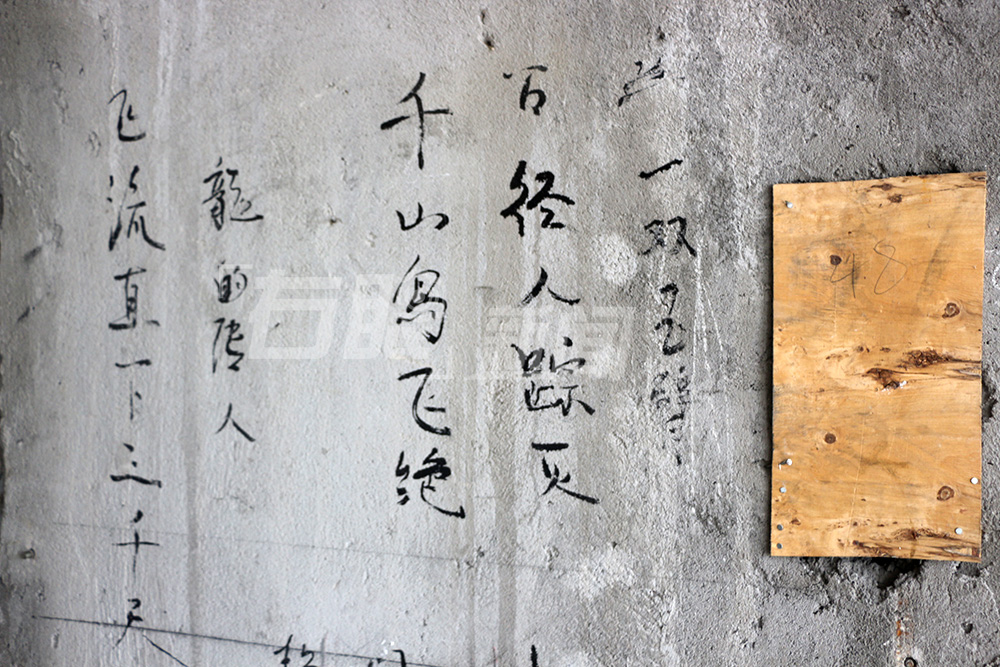 飞流直下三千尺
龍的传人
千山鸟飞绝
百径人踪灭
一双玉臂
48